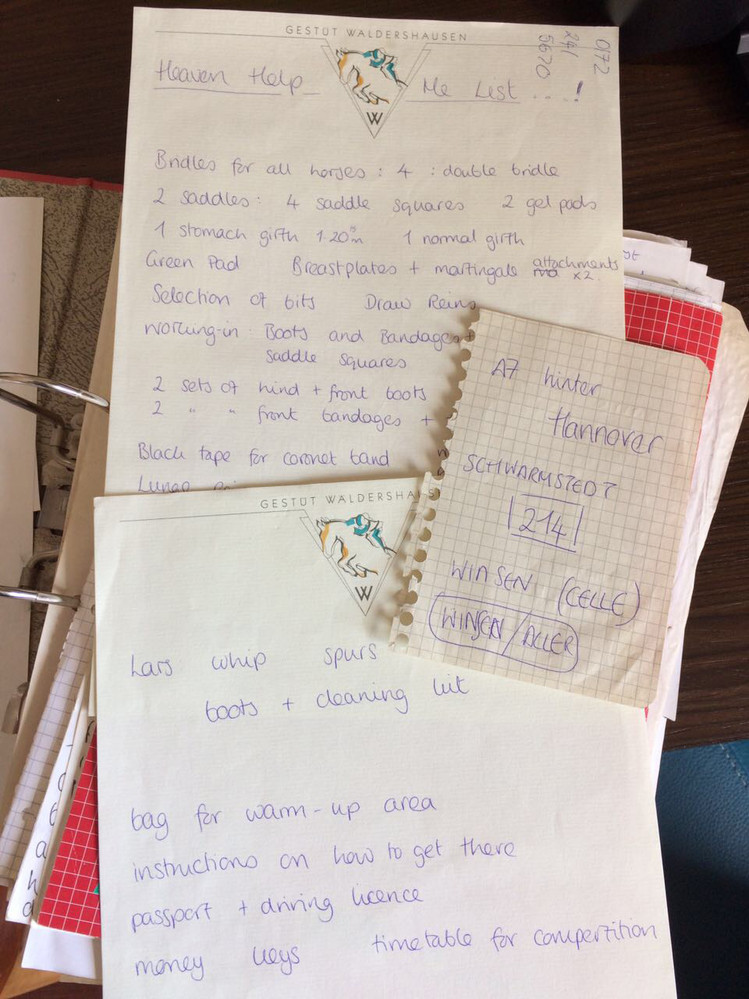 GESTÜT WALDERSHAUSEN
0172
241
5670
Heaven Help Me List ...!
W
Bridles for all horses : 4 : double bridle
2 saddles : 4 saddle squares 2 gel pads
1 stomach girth 1.20m 1 normal girth
Green Pad Breastplates + martingale attachments x2.
Selection of bits Draw Reins
Working-in : Boots and Bandages
saddle squares
2 sets of hind + front boots
2 " " front bandages +
Black tape for coronet band
Lunge
A7 hinter
Hannover
SCHWARMSTEDT
214
WINSEN (CELLE)
WINSEN/ALLER
GESTÜT WALDERSHAUS
W
Lars whip spurs
boots + cleaning kit
bag for warm-up area
instructions on how to get there
passport + driving licence
money keys timetable for competition